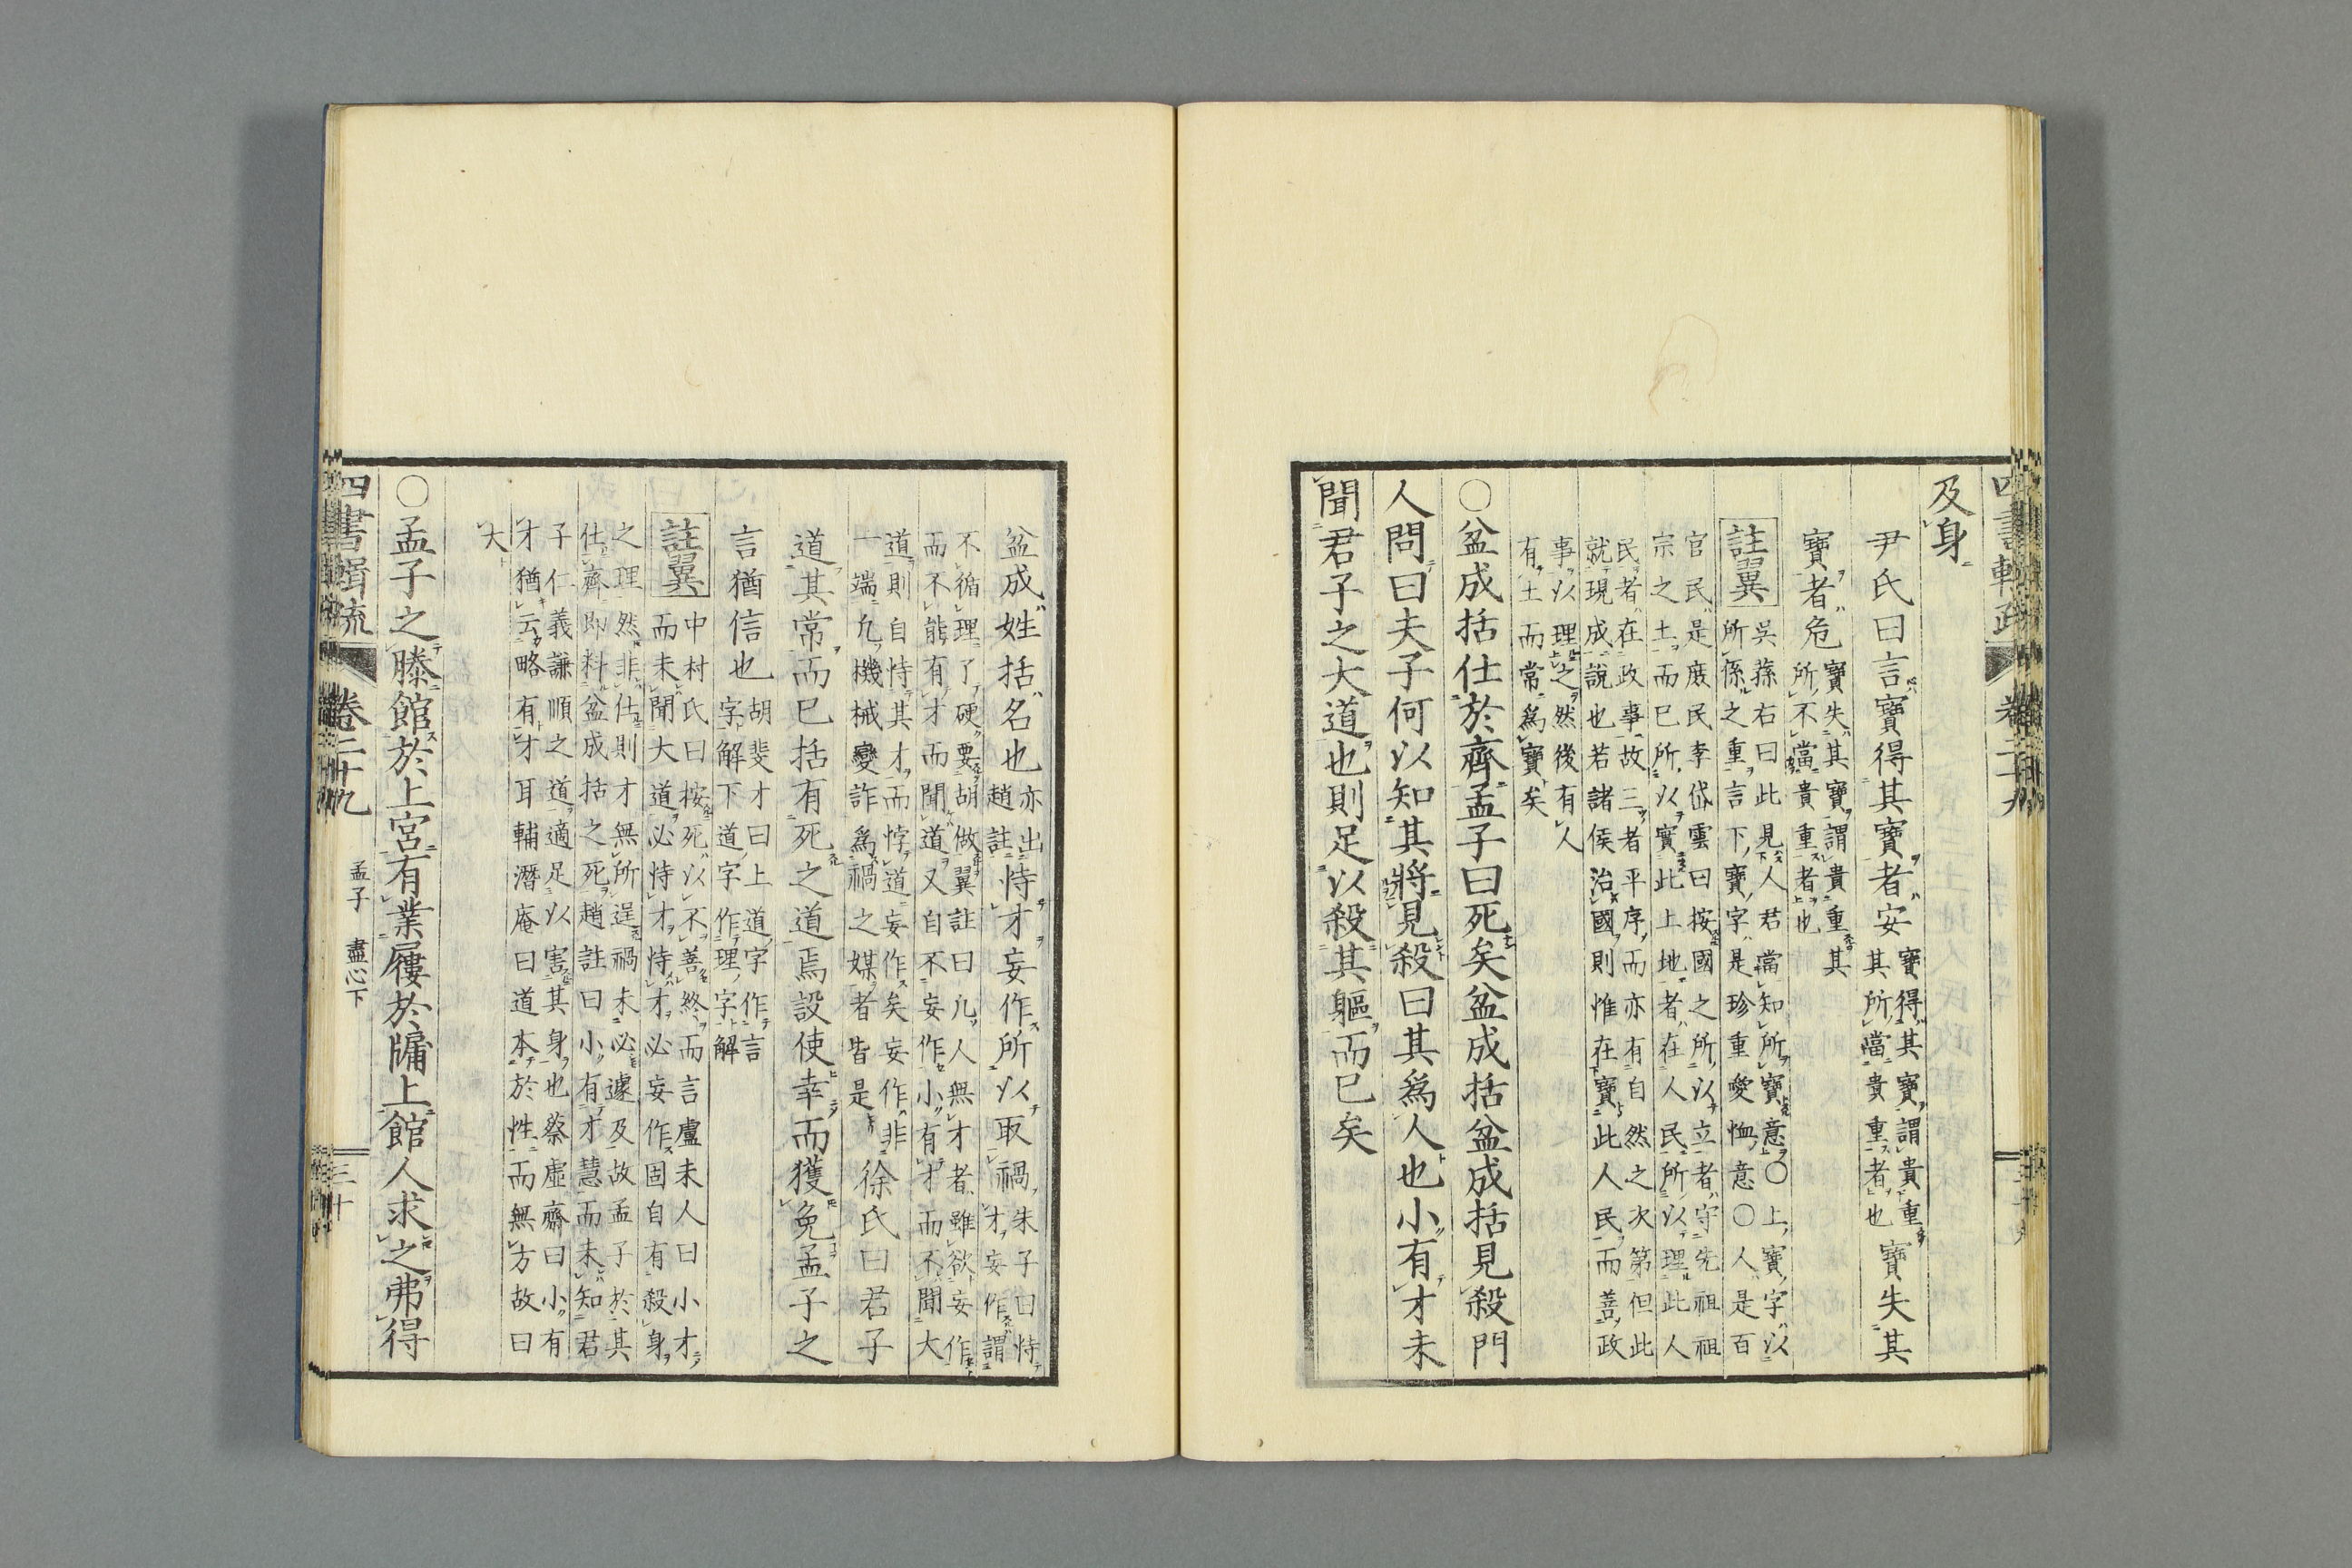 及身
尹氏曰言寶得其寶者安
寶得其寶謂貴重
其所當貴重者也
寶失其
寶者危
寶失其寶謂貴重其
所不當貴重者也
註翼
吳蓀右曰此見人君當知所寶意○上寶字以
所係之重言下寶字是珍重愛恤意○人是百
官民是庶民李岱雲曰按國之所以立者守先祖
宗之土而已所以寶此土地者在人民所以理此人
民者在政事故三者平序而亦有自然之次第但此
就現成說也若諸侯治國則惟在寶此人民而善政
事以理之然後有人
有土而常爲寶矣
○盆成括仕於齊孟子曰死矣盆成括盆成括見殺門
人問曰夫子何以知其將見殺曰其爲人也小有才未
聞君子之大道也則足以殺其軀而已矣
盆成姓括名也
亦出
趙註
恃才妄作所以取禍
朱子曰恃
才妄作謂
不循理了硬要胡做翼註曰凡人無才者雖欲妄作
而不能有才而聞道又自不妄作小有才而不聞大
道則自恃其才而悖道妄作矣妄作非
一端凡機械變詐爲禍之媒者皆是
徐氏曰君子
道其常而已括有死之道焉設使幸而獲免孟子之
言猶信也
胡斐才曰上道字作言
字解下道字作理字解
註翼
中村氏曰按死以不善終而言盧未人曰小才
而未聞大道必恃才恃才必妄作固自有殺身
之理然非仕則才無所逞禍未必遽及故孟子於其
仕齊即料盆成括之死趙註曰小有才慧而未知君
子仁義謙順之道適足以害其身也蔡虛齋曰小有
才猶云略有才耳輔潛庵曰道本於性而無方故曰
大
○孟子之滕館於上宮有業屨於牖上館人求之弗得
四書輯疏
卷二十九
孟子　盡心下
三十